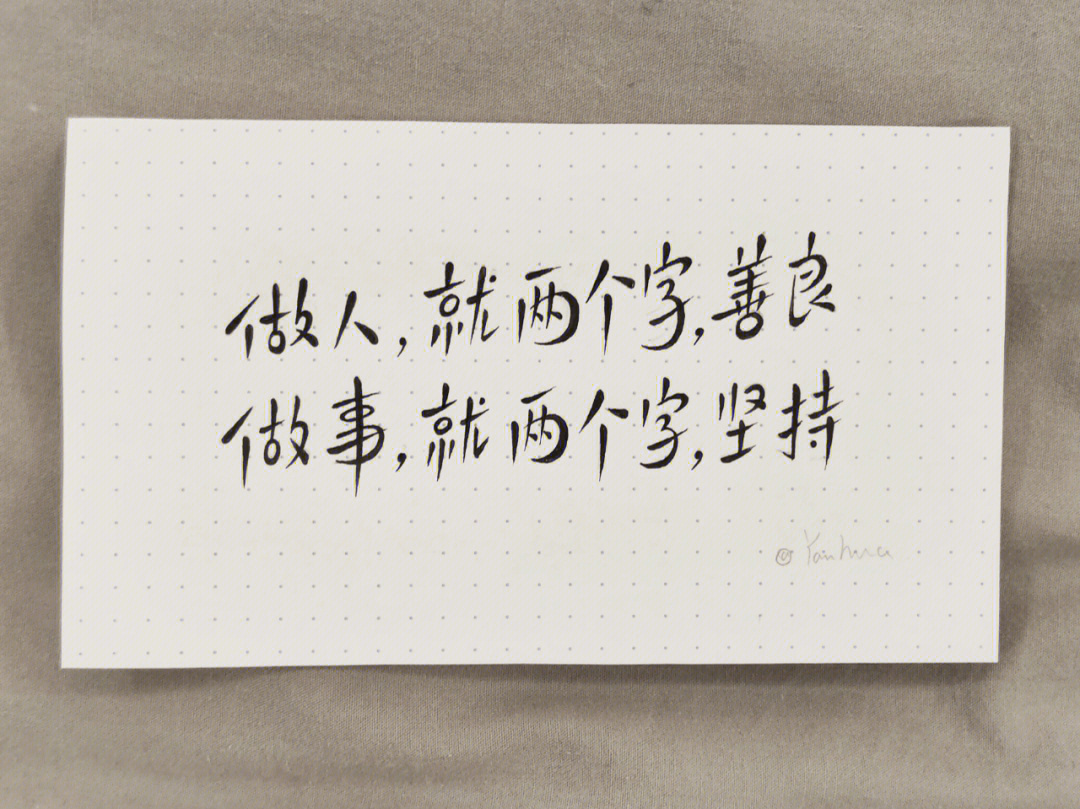 做人,就两个字,善良
做事,就两个字,坚持